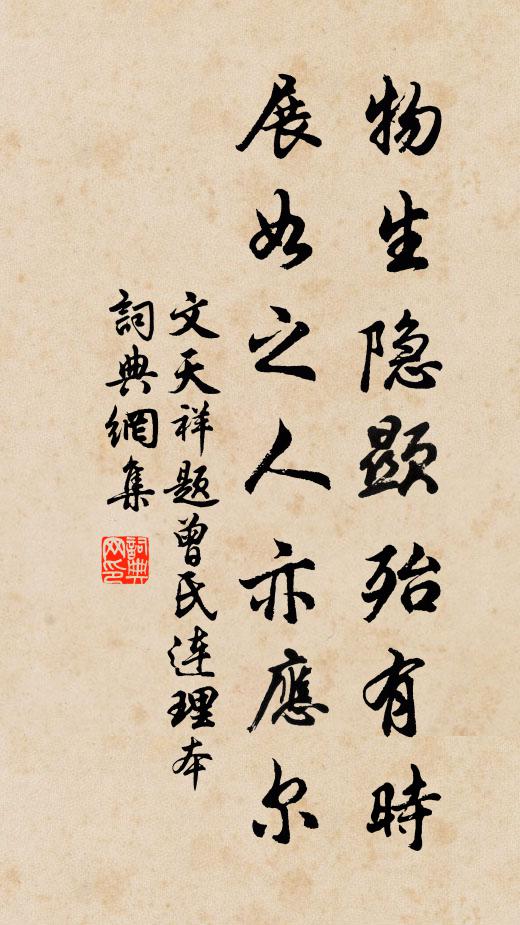 物生隐顕殆有時
展如之人亦應尔
文天祥題曾氏連理本
詞典網集
詞典
网印